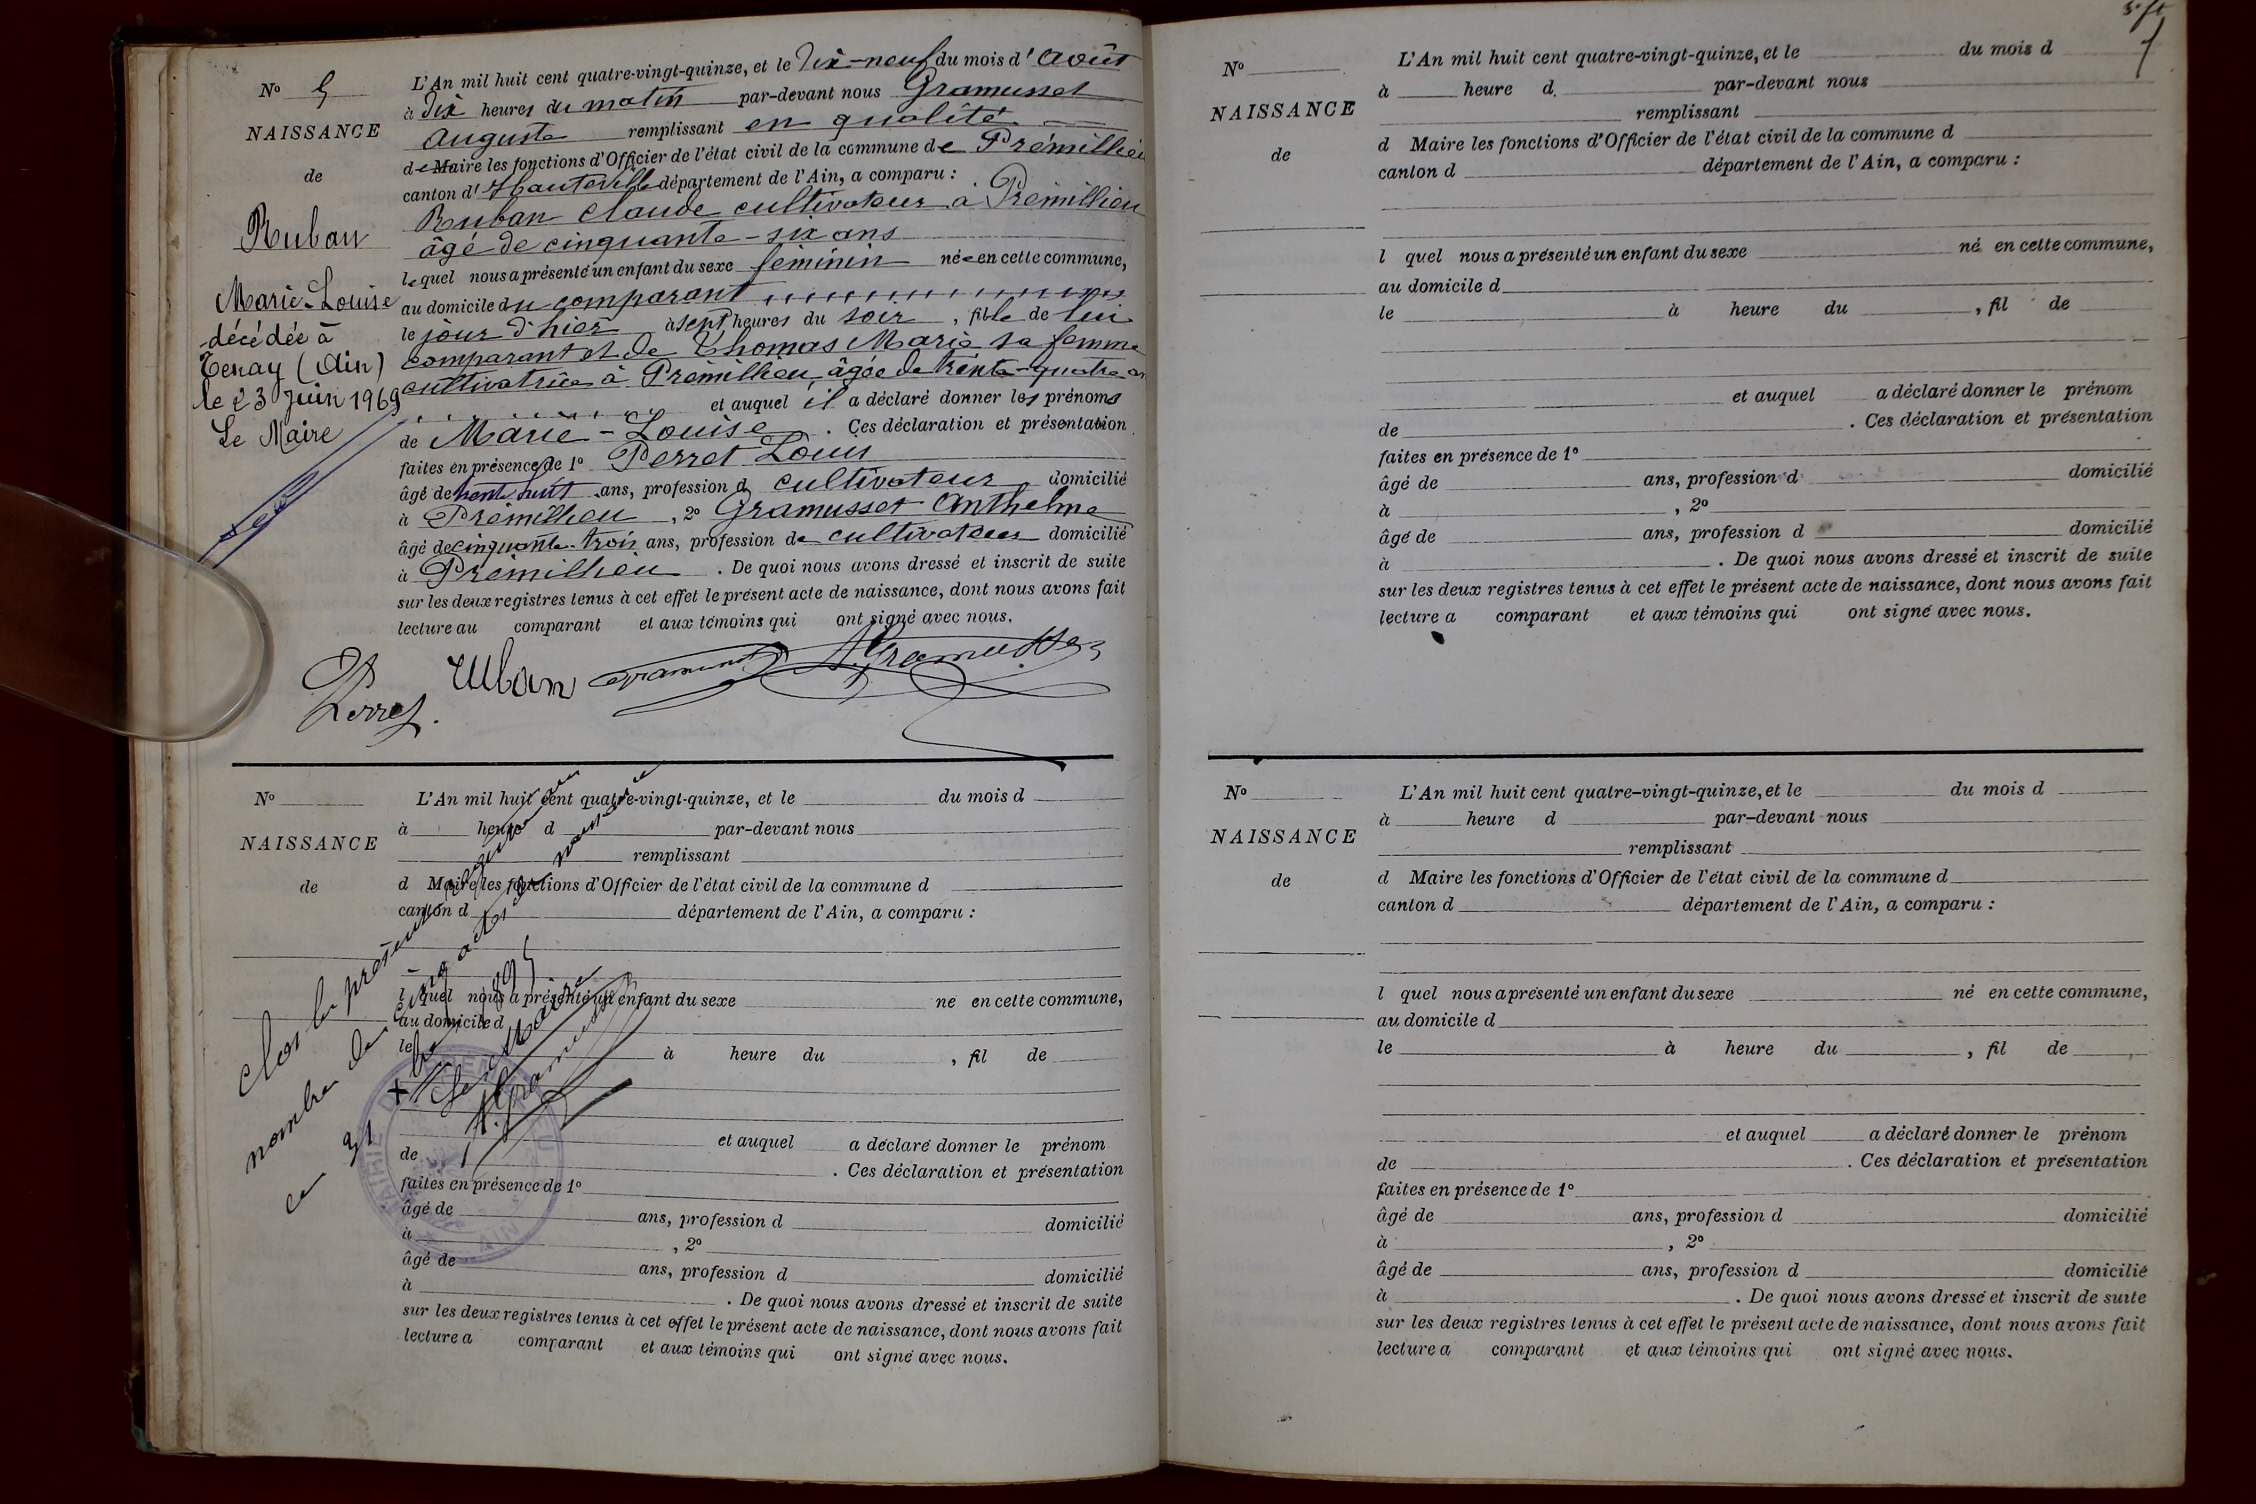 N° 5
NAISSANCE
de
Ruban
Marie-Louise
décédée à
Tenay (Ain)
le 23 Juin 1969
Le Maire
L'An mil huit cent quatre-vingt-quinze, et le Dix-neuf du mois d'Août
à Dix heures du matin par-devant nous Gramusset
Auguste remplissant en qualité
de Maire les fonctions d'Officier de l'état civil de la commune de Prémillieu
canton d'Hauteville département de l'Ain, a comparu :
Ruban Claude cultivateur à Prémillieu
âgé de cinquante-six ans
lequel nous a présenté un enfant du sexe féminin née en cette commune,
au domicile du comparant
le jour d'hier à sept heures du soir, fille de lui
comparant et de Thomas Marie sa femme
cultivatrice à Prémillieu âgée de trente-quatre an
et auquel il a déclaré donner les prénoms
de Marie-Louise . Ces déclaration et présentation
faites en présence de 1° Perret Louis
âgé de trente huit ans, profession d cultivateur domicilié
à Prémillieu, 2° Gramusset Anthelme
âgé de cinquante-trois ans, profession de cultivateur domicilié
à Prémillieu . De quoi nous avons dressé et inscrit de suite
sur les deux registres tenus à cet effet le présent acte de naissance, dont nous avons fait
lecture au comparant et aux témoins qui ont signé avec nous.
Perret. Ruban Gramusset A. Gramusset
N°
NAISSANCE
de
L'An mil huit cent quatre-vingt-quinze, et le du mois d
à heure d par-devant nous
remplissant
d Maire les fonctions d'Officier de l'état civil de la commune d
canton d département de l'Ain, a comparu :
l quel nous a présenté un enfant du sexe né en cette commune,
au domicile d
le à heure du , fil de
et auquel a déclaré donner le prénom
de . Ces déclaration et présentation
faites en présence de 1°
âgé de ans, profession d domicilié
à , 2°
âgé de ans, profession d domicilié
à . De quoi nous avons dressé et inscrit de suite
sur les deux registres tenus à cet effet le présent acte de naissance, dont nous avons fait
lecture a comparant et aux témoins qui ont signé avec nous.
Clos le présent registre
nombre de cinq actes de naissance
ce 31 Xbre 1895
Le Maire
A. Gramusset
MAIRIE DE PREMILLIEU
AIN
N°
NAISSANCE
de
L'An mil huit cent quatre-vingt-quinze, et le du mois d
à heure d. par-devant nous
remplissant
d Maire les fonctions d'Officier de l'état civil de la commune d
canton d département de l'Ain, a comparu :
l quel nous a présenté un enfant du sexe né en cette commune,
au domicile d
le à heure du , fil de
et auquel a déclaré donner le prénom
de . Ces déclaration et présentation
faites en présence de 1°
âgé de ans, profession d domicilié
à , 2°
âgé de ans, profession d domicilié
à . De quoi nous avons dressé et inscrit de suite
sur les deux registres tenus à cet effet le présent acte de naissance, dont nous avons fait
lecture a comparant et aux témoins qui ont signé avec nous.
N°
NAISSANCE
de
L'An mil huit cent quatre-vingt-quinze, et le du mois d
à heure d par-devant nous
remplissant
d Maire les fonctions d'Officier de l'état civil de la commune d
canton d département de l'Ain, a comparu :
l quel nous a présenté un enfant du sexe né en cette commune,
au domicile d
le à heure du , fil de
et auquel a déclaré donner le prénom
de . Ces déclaration et présentation
faites en présence de 1°
âgé de ans, profession d domicilié
à , 2°
âgé de ans, profession d domicilié
à . De quoi nous avons dressé et inscrit de suite
sur les deux registres tenus à cet effet le présent acte de naissance, dont nous avons fait
lecture a comparant et aux témoins qui ont signé avec nous.